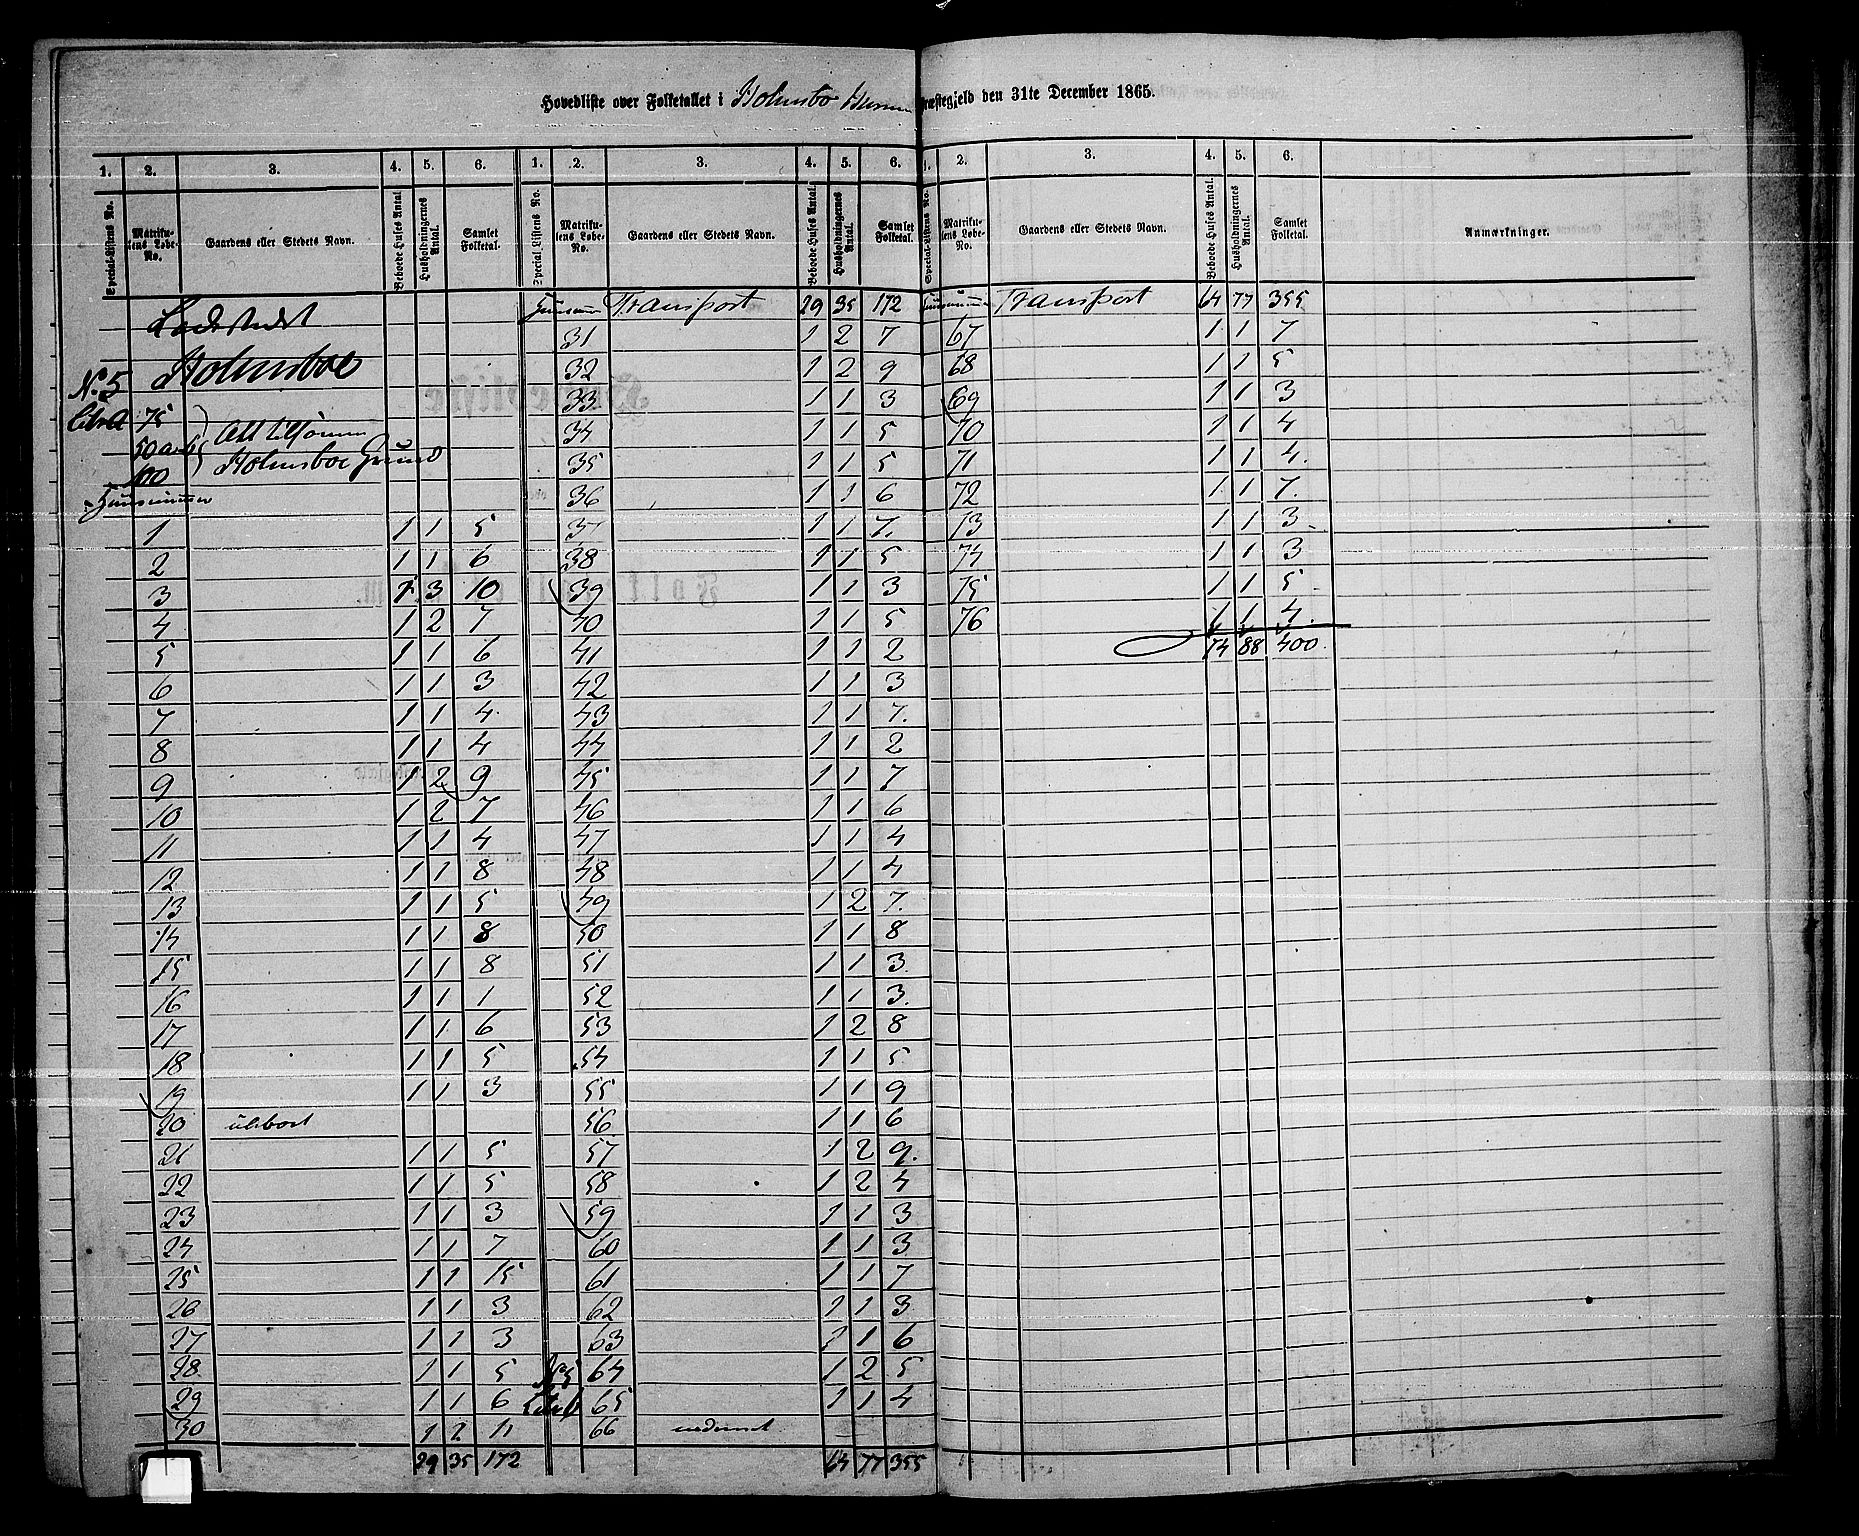 Hovedliste over Folketallet i Holmsbo Hurum Præstegjeld den 31te December 1865.
1. 2. 3. 4. 5. 6.
Special-Listens No. Matrikulens Løbe-No. Gaardens eller Stedets Navn. Beboede Huses Antal. Husholdningernes Antal. Samlet Folketal.
Ladestedet
Holmsboe
No. 5
Litr. A 75
50
100
Holmsboe Grund
Huusnummer
1 1 1 5
2 1 1 6
3 1 3 10
4 1 2 7
5 1 1 6
6 1 1 3
7 1 1 4
8 1 1 4
9 1 2 9
10 1 2 7
11 1 1 4
12 1 1 8
13 1 1 5
14 1 1 8
15 1 1 8
16 1 1 1
17 1 1 6
18 1 1 5
19 1 1 3
20
21 1 1 5
22 1 1 5
23 1 1 3
24 1 1 7
25 1 1 15
26 1 1 3
27 1 1 3
28 1 1 5
29 1 1 6
30 1 2 11
29 35 172
1. 2. 3. 4. 5. 6.
Special-Listens No. Matrikulens Løbe-No. Gaardens eller Stedets Navn. Beboede Huses Antal. Husholdningernes Antal. Samlet Folketal.
Huusnummer Transport 29 35 172
31 1 2 7
32 1 2 9
33 1 1 3
34 1 1 5
35 1 1 5
36 1 1 6
37 1 1 7.
38 1 1 5
39 1 1 3
40 1 1 5
41 1 1 2
42 1 1 3
43 1 1 7.
44 1 1 2
45 1 1 7
46 1 1 6
47 1 1 4
48 1 1 4
49 1 2 7.
50 1 1 8
51 1 1 3.
52 1 1 3.
53 1 2 8
54 1 1 5
55 1 1 9
56 1 1 6
57 1 2 9.
58 1 2 4
59 1 1 3
60 1 1 3
61 1 1 7
62 1 1 3
63 1 1 6
No 5 64 1 2 5
Litr. b 65 1 1 4
66
64 77 355
1. 2. 3. 4. 5. 6.
Special-Listens No. Matrikulens Løbe-No. Gaardens eller Stedets Navn. Beboede Huses Antal. Husholdningernes Antal. Samlet Folketal. Anmærkninger.
Huusnummer Transport 64 77 355
67 1 1 7
68 1 1 5
69 1 1 3
70 1 1 4
71 1 1 4.
72 1 1 7.
73 1 1 3
74 1 1 3
75 1 1 5
76 1 1 4.
74 88 400.